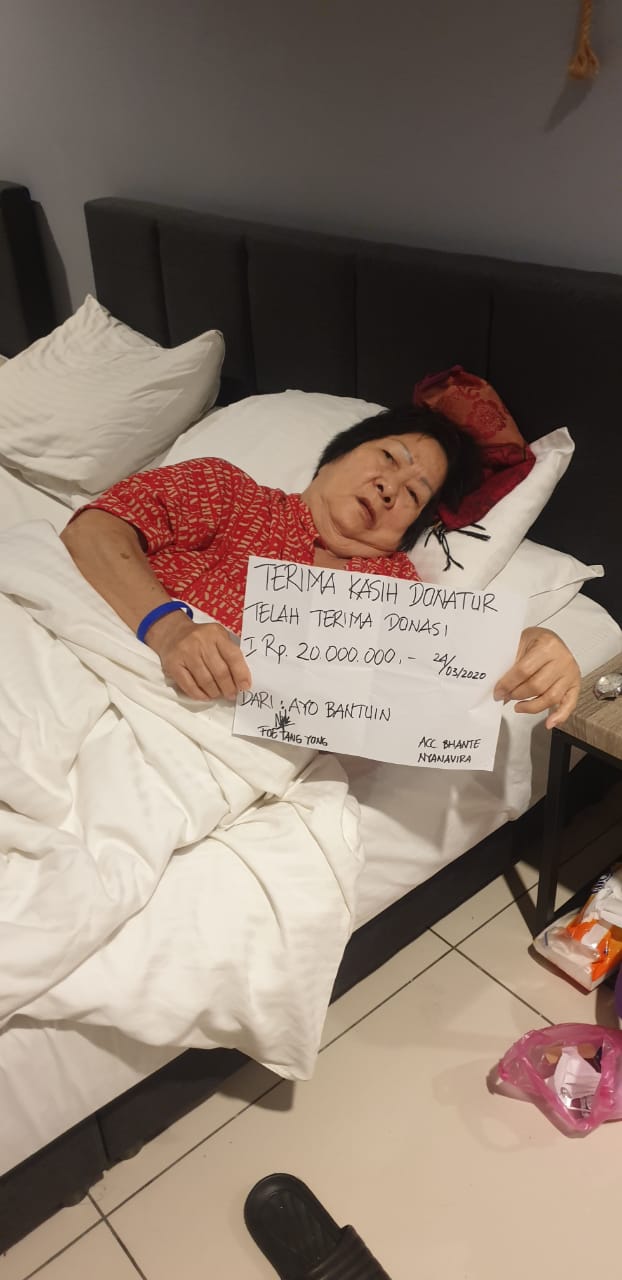 TERIMA KASIH DONATUR
TELAH TERIMA DONASI
I Rp. 20.000.000,- 24/03/2020
DARI : AYO BANTUIN
FOE TANG YONG
ACC BHANTE
NYANAVIRA